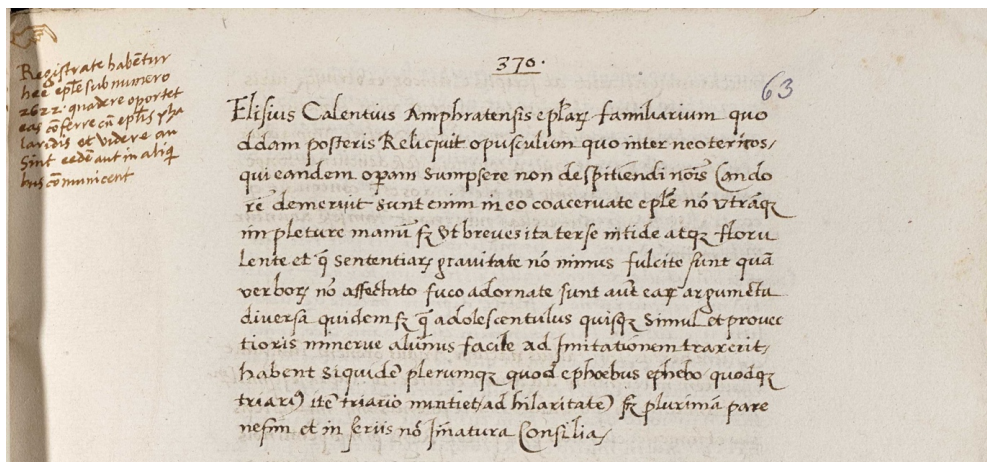 Registrate habētur
hee eple sub numero
2622. quadere oportet
eas cōferre cū eplis pha
laridis et videre an
sint eedē aut in aliq
bus cōmunicent
370.
63
Elisius Calentus Amphratensis eplaꝝ familiarium quo
ddam posteris Reliquit opusculum quo inter neotericos/
qui eandem opam sumpsere non despitiendi nōis Cando
rē demeruit sunt enim in eo coacervate eple nō vtrāqꝫ
impleture manū sꝫ vt breves ita terse nitide atqꝫ floru
lente et q̄ sententiaꝝ gravitate nō minus fulcite sunt quā
verboꝝ nō affectato fuco adornate sunt autē eaꝝ argumēta
diversa quidem sꝫ q̄ adolescentulus quisqꝫ simul et provec
tioris minerve alūnus facile ad Imitationem traxerit/
habent siquidē plerumqꝫ quod ephoebus ephebo quodqꝫ
triariꝰ itē triario nuntiet/ad hilaritatē sꝫ plurimā pare
nesim et in seriis nō Īmatura Consilia/